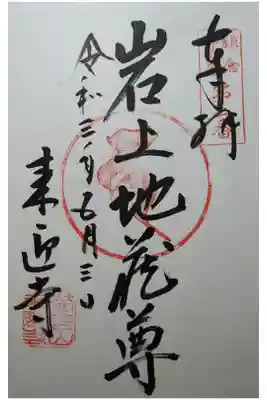 奉拝
岩上地蔵尊
令和三年五月三日
来迎寺